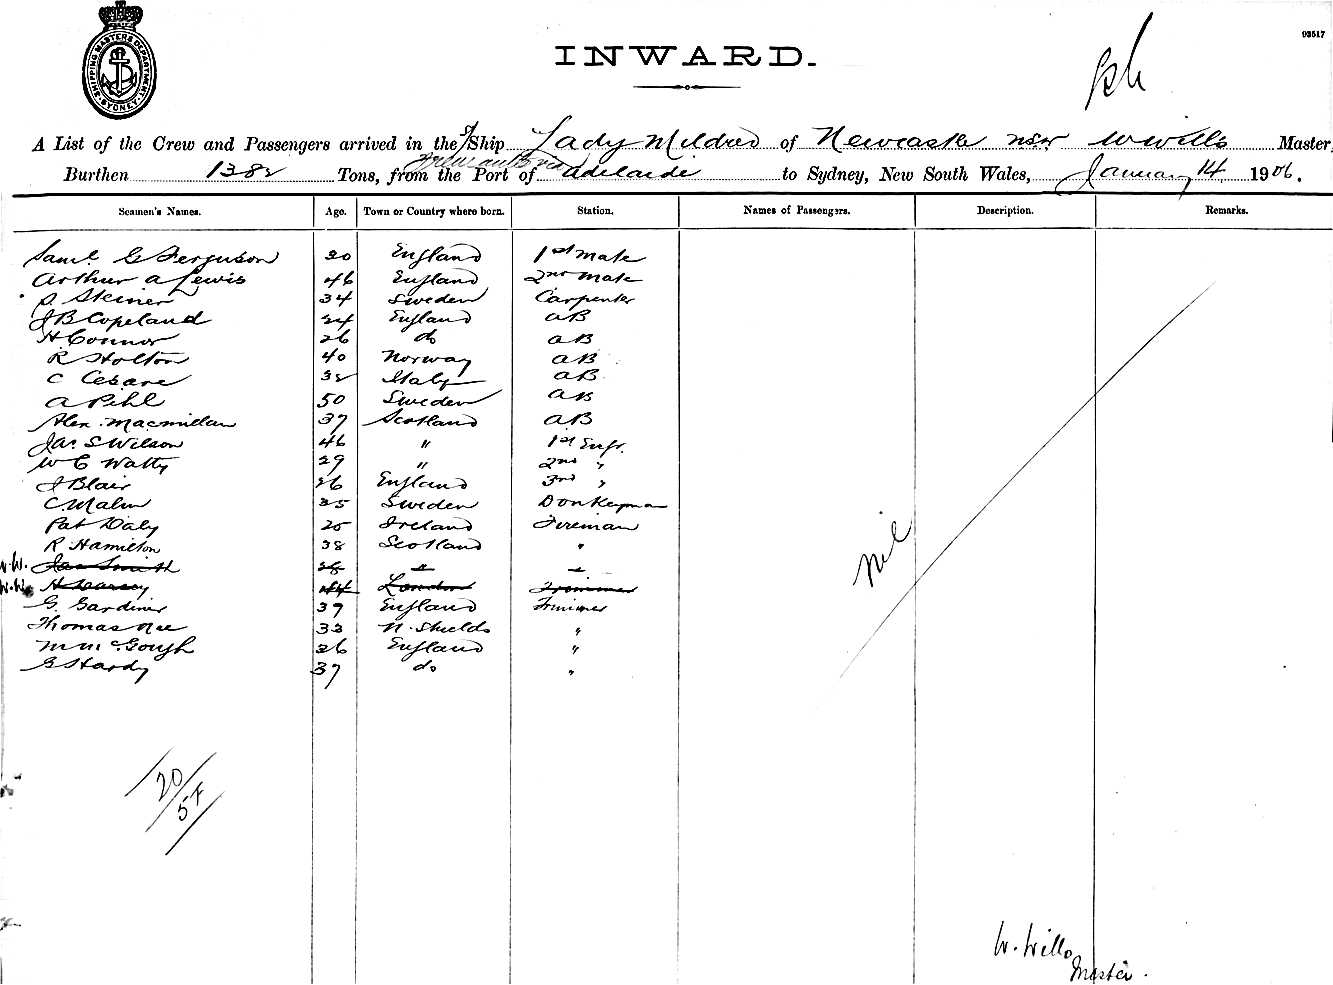 SHIPPING MASTERS DEPARTMENT SYDNEY
INWARD.
93517
A List of the Crew and Passengers arrived in the S/Ship Lady Mildred of Newcastle NSW W Wills Master,
Burthen 1382 Tons, from the Port of Adelaide to Sydney, New South Wales, January 14 1906.
Seamen's Names. Age. Town or Country where born. Station. Names of Passengers. Description. Remarks.
Saml G Ferguson 20 England 1st Mate
Arthur A Lewis 46 England 2nd Mate
S. Steiner 34 Sweden Carpenter
J B Copeland 24 England AB
H Connor 26 do AB
R Holton 40 Norway AB
C Cesare 32 Italy AB
A Pihl 50 Sweden AB
Alex. Macmillan 37 Scotland AB
Jas. S Wilson 46 " 1st Engr.
W C Watty 29 " 2nd "
J Blair 26 England 3rd "
C. Malm 35 Sweden Donkeyman
Pat Daly 25 Ireland Fireman
R Hamilton 38 Scotland "
W.W. Jas Smith 28 " "
W.W. H 44 London Trimmer
G. Gardiner 39 England Trimmer
Thomas Rae 33 N. Shields "
M McGough 26 England "
G Hardy 37 do "
nil
20/57
W. Wills
Master.